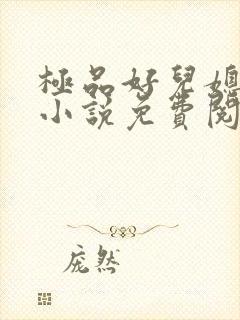 極品好兒媳
小說免費閱
庞然